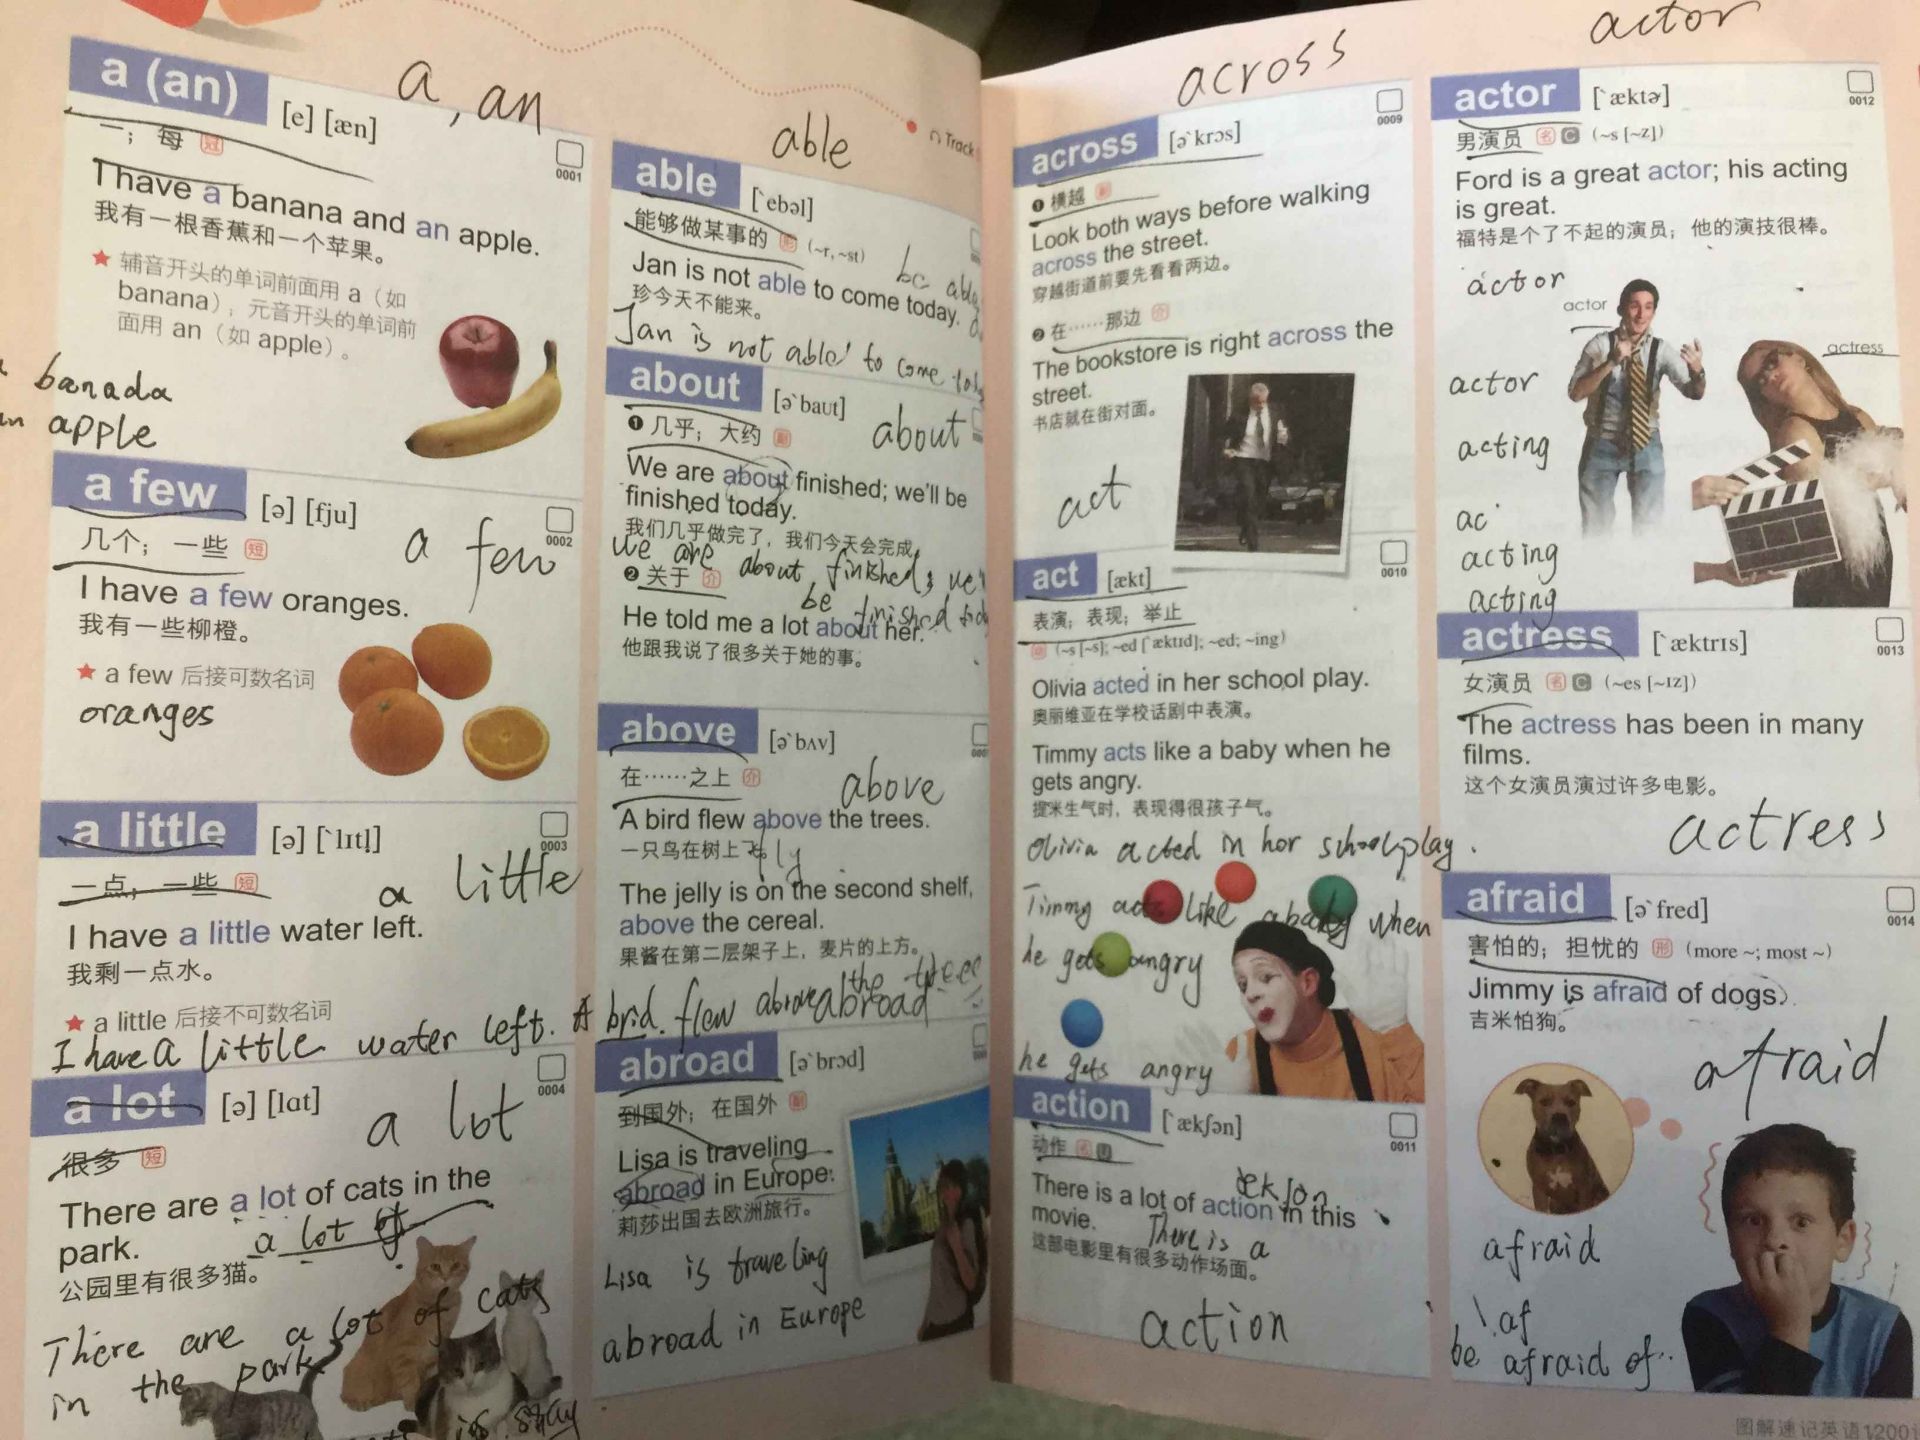 a (an) [e] [æn]
a, an
一；每 冠
0001
I have a banana and an apple.
我有一根香蕉和一个苹果。
★ 辅音开头的单词前面用 a（如
banana）；元音开头的单词前
面用 an（如 apple）。
banada
an apple
a few [ə] [fju]
0002
几个；一些 短
a few
I have a few oranges.
我有一些柳橙。
★ a few 后接可数名词
oranges
a little [ə] [ˋlɪtl̩]
0003
一点；一些 短
a little
I have a little water left.
我剩一点水。
★ a little 后接不可数名词
I have a little water left.
a lot [ə] [lɑt]
0004
a lot
很多 短
There are a lot of cats in the
park.
a lot of
公园里有很多猫。
There are a lot of cats
in the park
is
Track
able
able [ˋebəl]
能够做某事的 形 (~r, ~st)
be able
Jan is not able to come today.
珍今天不能来。
Jan is not able to come
about [əˋbaut]
❶ 几乎；大约 副
about
We are about finished; we'll be
finished today.
我们几乎做完了，我们今天会完成。
we are about finished;
be finished
❷ 关于 介
He told me a lot about her.
他跟我说了很多关于她的事。
above [əˋbʌv]
在……之上 介
above
A bird flew above the trees.
一只鸟在树上飞。
fly
The jelly is on the second shelf,
above the cereal.
果酱在第二层架子上，麦片的上方。
the trees
A brid. flew above
abroad
abroad [əˋbrɔd]
到国外；在国外 副
Lisa is traveling
abroad in Europe.
莉莎出国去欧洲旅行。
Lisa is traveling
abroad in Europe
across
across [əˋkrɔs]
0009
❶ 横越 副
Look both ways before walking
across the street.
穿越街道前要先看看两边。
❷ 在……那边 介
The bookstore is right across the
street.
书店就在街对面。
act
act [ækt]
0010
表演；表现；举止
动 (~s [~s]; ~ed [ˋæktɪd]; ~ed; ~ing)
Olivia acted in her school play.
奥丽维亚在学校话剧中表演。
Timmy acts like a baby when he
gets angry.
提米生气时，表现得很孩子气。
Olivia acted in her school play.
Timmy acts like a baby when
he gets angry
he gets angry
action [ˋækʃən]
0011
动作 名 U
ækʃən
There is a lot of action in this
movie.
There is a
这部电影里有很多动作场面。
action
actor
actor [ˋæktɚ]
0012
男演员 名 C (~s [~z])
Ford is a great actor; his acting
is great.
福特是个了不起的演员；他的演技很棒。
actor
actor
actress
actor
acting
ac
acting
acting
actress [ˋæktrɪs]
0013
女演员 名 C (~es [~ɪz])
The actress has been in many
films.
这个女演员演过许多电影。
actress
afraid [əˋfred]
0014
害怕的；担忧的 形 (more ~; most ~)
Jimmy is afraid of dogs.
吉米怕狗。
afraid
afraid
af
be afraid of..
图解速记英语1200